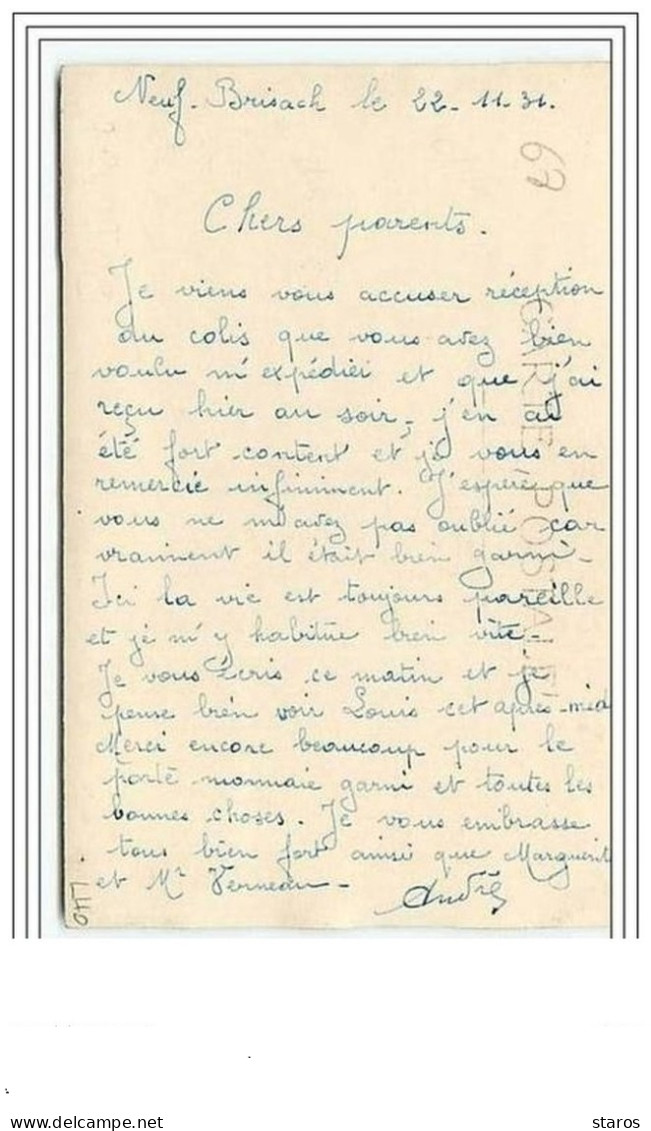 Neuf-Brisach le 22-11-31.
67
Chers parents.
Je viens vous accuser réception
du colis que vous avez bien
voulu m'expédier et que j'ai
reçu hier au soir, j'en ai
été fort content et je vous en
remercie infiniment. J'espère que
vous ne m'avez pas oublié car
vraiment il était bien garni-
Ici la vie est toujours pareille
et je m'y habitue bien vite-
Je vous écris ce matin et je
pense bien voir Louis cet après-mid
Merci encore beaucoup pour le
porte monnaie garni et toutes les
bonnes choses. Je vous embrasse
tous bien fort ainsi que Marguerit
et Mr Verneau-
André
CARTE POSTALE
delcampe.net
staros